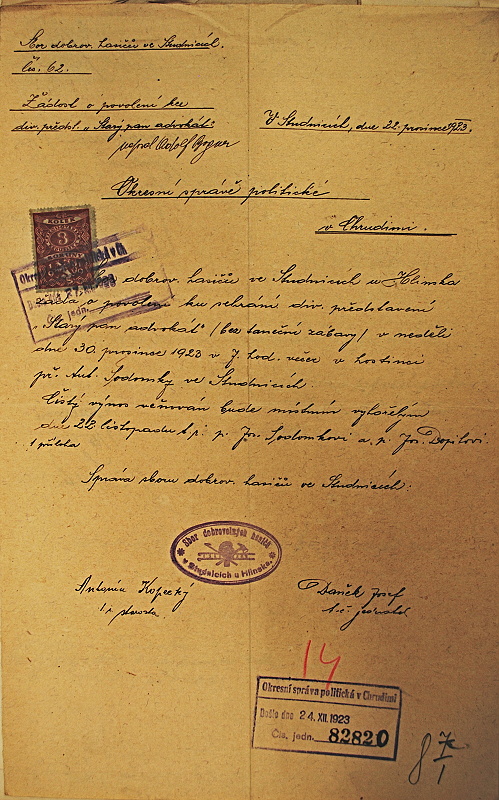 Sbor dobrov. hasičů ve Studnicích.
čís. 62.
Žádost o povolení ku
div. předst. „Starý pan advokát"
napsal Adolf Bogner
V Studnicích, dne 22. prosince 1923.
Okresní správě politické
v Chrudimi.
KOLEK
3
dobrov. hasičů ve Studnicích u Hlinska
žádá o povolení ku sehrání div. představení
„Starý pan advokát" (bez taneční zábavy) v neděli
dne 30. prosince 1923 v 7 hod. večer v hostinci
př. Ant. Sodomky ve Studnicích.
Čistý výnos věnován bude místním vyhořelým
dne 22 listopadu t.j. p. Jos. Sodomkovi a p. Jos. Dopilovi.
1 příloha
Správa sboru dobrov. hasičů ve Studnicích:
Sbor dobrovolných hasičů
v Studnicích u Hlinska.
Antonín Kopecký
t.č. starosta
Daněk Josef
t.č. jednatel
14
Okresní správa politická v Chrudimi
Došlo dne 24. XII. 1923
Čís. jedn. 82820
8 7/I